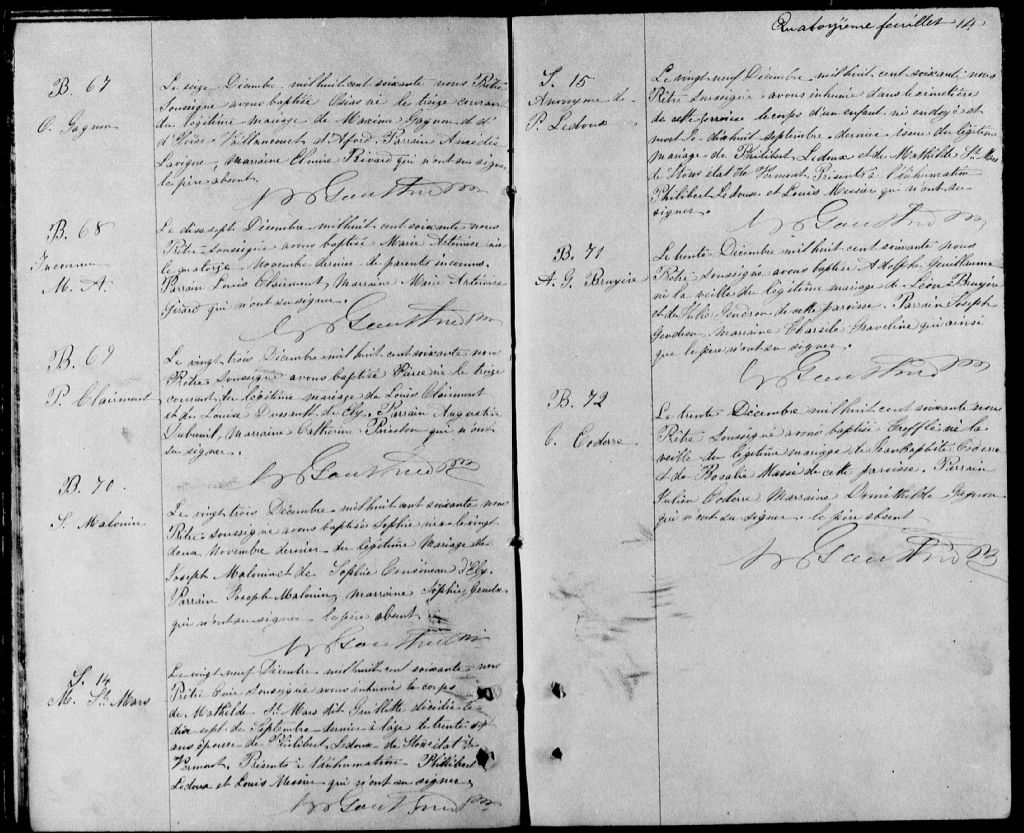 B. 67
O. Gagnon
Le seize Décembre mil huit cent soixante nous Prêtre
Soussigné avons baptisé Osias né le treize courant
du légitime mariage de Maxime Gagnon et d'
Eloïse Vallancourt d'Afford. Parrain Amédée
Lavigne, Marraine Elmire Rivard qui n'ont su signer
le père absent.
Gauthred Ptr
B. 68
Inconnu
M. A.
Le dix sept Décembre mil huit cent soixante nous
Prêtre Soussigné avons baptisé Marie Artémise née
le quatorze Novembre dernier de parents inconnus.
Parrain Louis Clairmont, Marraine Marie Artémise
Girard qui n'ont su signer.
Gauthred Ptr
B. 69
P. Clairmont
Le vingt trois Décembre mil huit cent soixante nous
Prêtre Soussigné avons baptisé Pierre né le treize
courant du légitime mariage de Louis Clairmont
et de Louise Dussault de Ely. Parrain Augustin
Dubreuil, Marraine Catherine qui n'ont
su signer.
Gauthred Ptr
B. 70.
S. Malouin
Le vingt trois Décembre mil huit cent soixante nous
Prêtre Soussigné avons baptisé Sophie née le vingt
deux Novembre dernier du légitime Mariage de
Joseph Malouin et de Sophie d'Ely.
Parrain Joseph Malouin, marraine Sophie
qui n'ont su signer le père absent.
Gauthred Ptr
S. 14
M. St. Mars
Le vingt neuf Décembre mil huit cent soixante nous
Prêtre Curé Soussigné avons inhumé le corps
de Mathilde St Mars dit Guillette décédée le
dix sept de Septembre dernier à l'âge de trente sept
ans épouse de Philibert Ledoux de Stow état de
Vermont, Présents à l'inhumation Philibert
Ledoux et Louis Messier qui n'ont su signer,
Gauthred Ptr
Quatorzième feuillet 14
S. 15
Anonyme de
P. Ledoux
Le vingt neuf Décembre mil huit cent soixante nous
Prêtre Soussigné avons inhumé dans le cimetière
de cette paroisse le corps d'un enfant né ondoyé et
mort le dix huit septembre dernier Issu du légitime
mariage de Philibert Ledoux et de Mathilde St Mars
de Stow état de Vermont. Présents à l'inhumation
Philibert Ledoux et Louis Messier qui n'ont su
signer.
Gauthred Ptr
B. 71
A. G. Bruyère
Le trente Décembre mil huit cent soixante nous
Prêtre Soussigné avons baptisé Adolphe Guillaume
né la veille du légitime mariage de Léon Bruyère
et de Julie Gendron de cette paroisse. Parrain Joseph
Gendron marraine Tharsile Graveline qui ainsi
que le père n'ont su signer.
Gauthred Ptr
B. 72
T. Coderre
Le trente Décembre mil huit cent soixante nous
Prêtre Soussigné avons baptisé Trefflé né la
veille du légitime mariage de Jean Baptiste Coderre
et de Rosalie Massé de cette paroisse. Parrain
Julien Coderre Marraine Domithilde Gagnon
qui n'ont su signer. le père absent
Gauthred Ptr